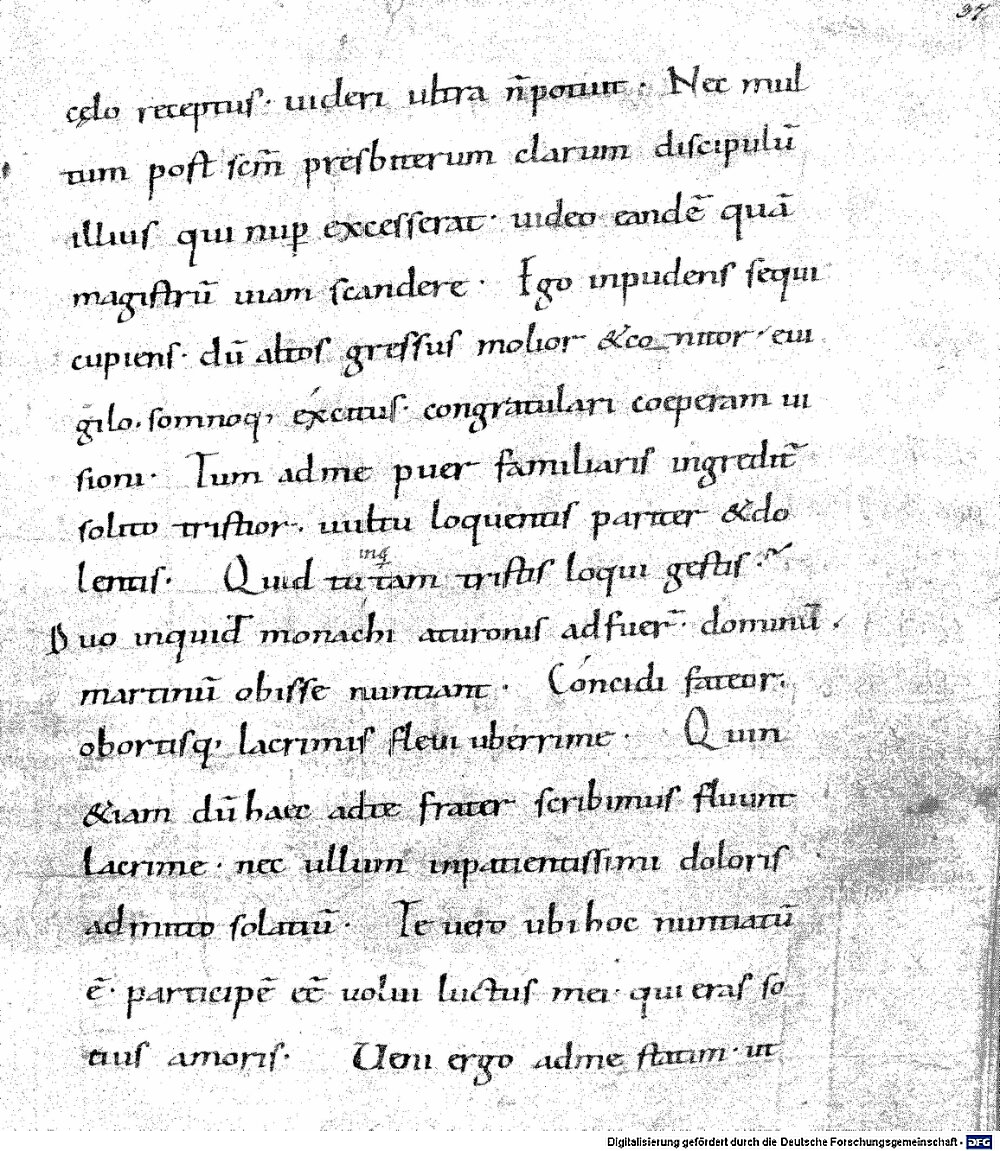 37
cęlo receptus· uideri ultra n̄ potuit· Nec mul
tum post scm̄ presbiterum clarum discipulū
illius qui nup̱ excesserat· uideo eandē quā
magistrū uiam scandere· Ego inpudens sequi
cupiens· dū altos gressus molior &co nitor· eui
gilo· somnoq, excitus· congratulari coeperam ui
sioni· Tum ad me puer familiaris ingredit̄
solito tristior· uultu loquentis pariter &do
lentis· Quid tu inq̨ tam tristis loqui gestis·
Duo inquid monachi aturonis adfuer̄· dominū
martinū obisse nuntiant· Concidi fateor·
obortisq, lacrimis fleui uberrime· Quin
&iam dū haec adte frater scribimus fluunt
lacrime· nec ullum inpatientissimi doloris
admitto solatiū· Te uero ubi hoc nuntiatū
ē· participē eē uolui luctus mei· qui eras so
cius amoris· Ueni ergo adme statim· ut
Digitalisierung gefördert durch die Deutsche Forschungsgemeinschaft - DFG